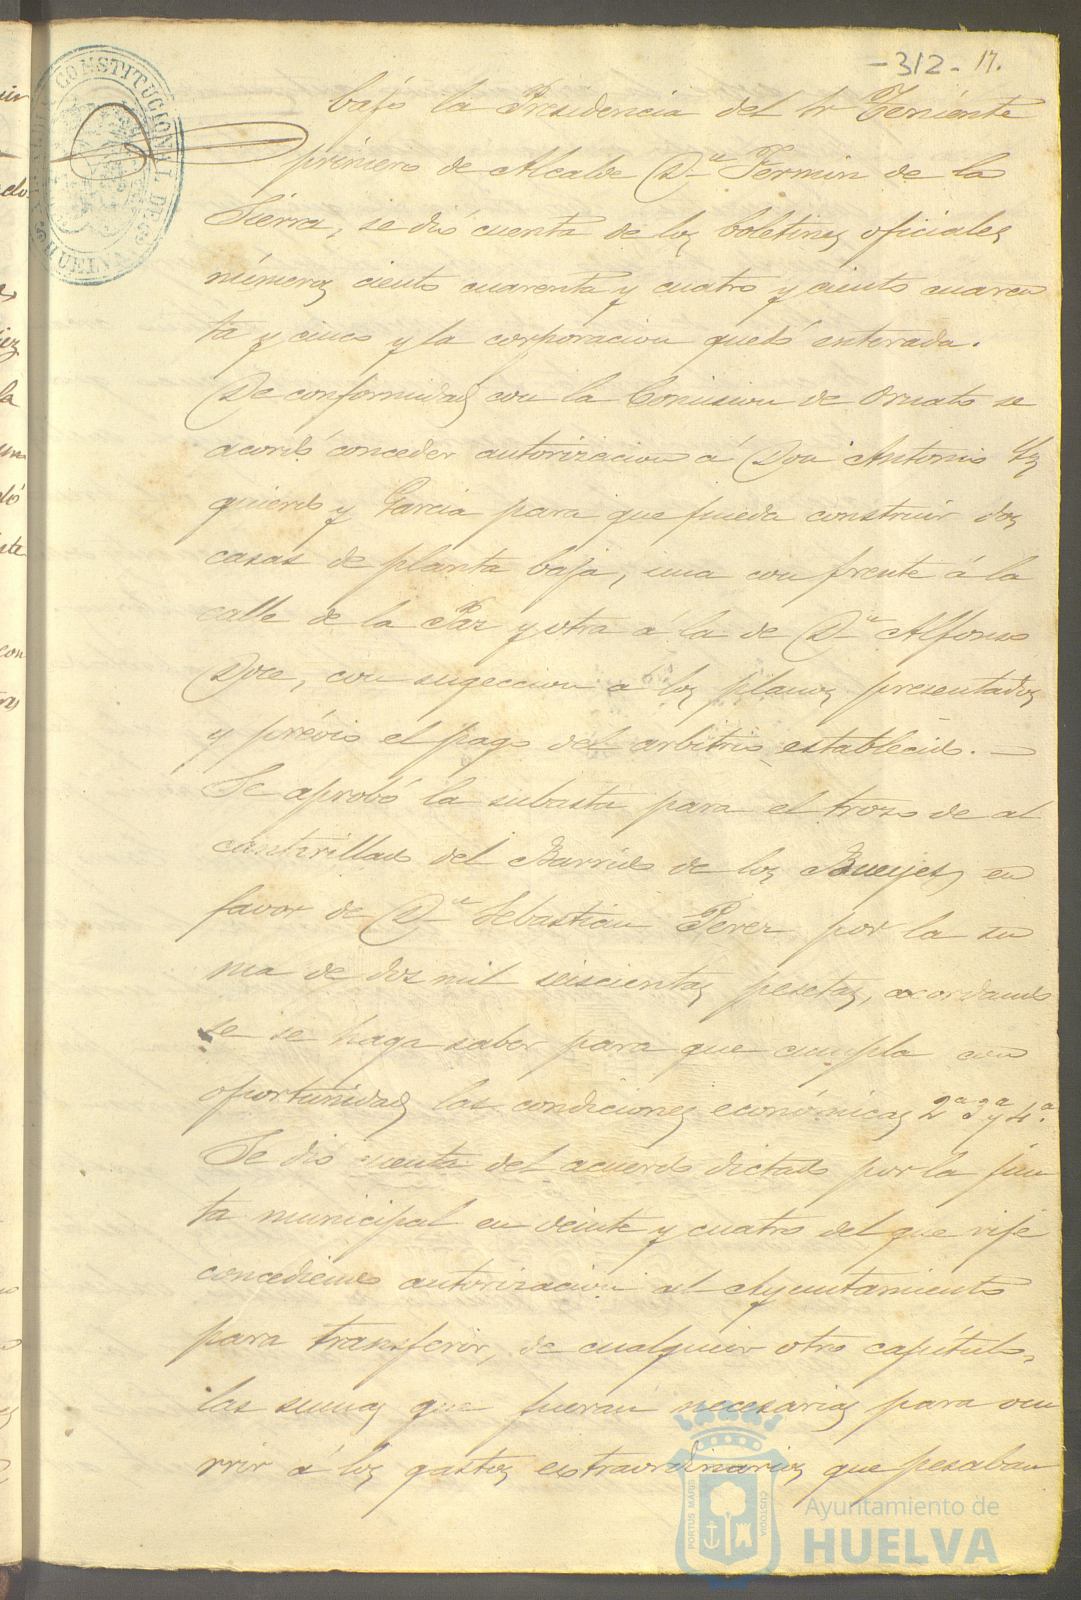 -312- 17.
CONSTITUCIONAL DE
HUELVA
bajo la Presidencia del Sr Teniente
primero de Alcalde Dn Fermin de la
Sierra, se dió cuenta de los boletines oficiales
números ciento cuarenta y cuatro y ciento cuaren
ta y cinco y la corporacion quedó enterada.
De conformidad con la Comision de Ornato se
acordó conceder autorizacion á Don Antonio Yz
quierdo y Garcia para que pueda construir dos
casas de planta baja, una con frente á la
calle de la Paz y otra á la de Dn Alfonso
Doce, con sugeccion á los planos presentados
y prévio el pago del arbitrio establecido. —
Se aprobó la subasta para el trozo de al
cantarillado del Barrio de los Bueyes en
favor de Dn Sebastian Perez por la su
ma de dos mil seiscientas pesetas, acordando
se se haga saber para que cumpla con
oportunidad las condiciones económicas 2ª 3ª y 4ª.
Se dió cuenta del acuerdo dictado por la jun
ta municipal en veinte y cuatro del que rije
concediendo autorizacion al Ayuntamiento
para transferir, de cualquier otro capítulo,
las sumas que fueran necesarias para ocu
rrir á los gastos extraordinarios que pesaban
PORTUS MARIS CUSTODIA
Ayuntamiento de
HUELVA